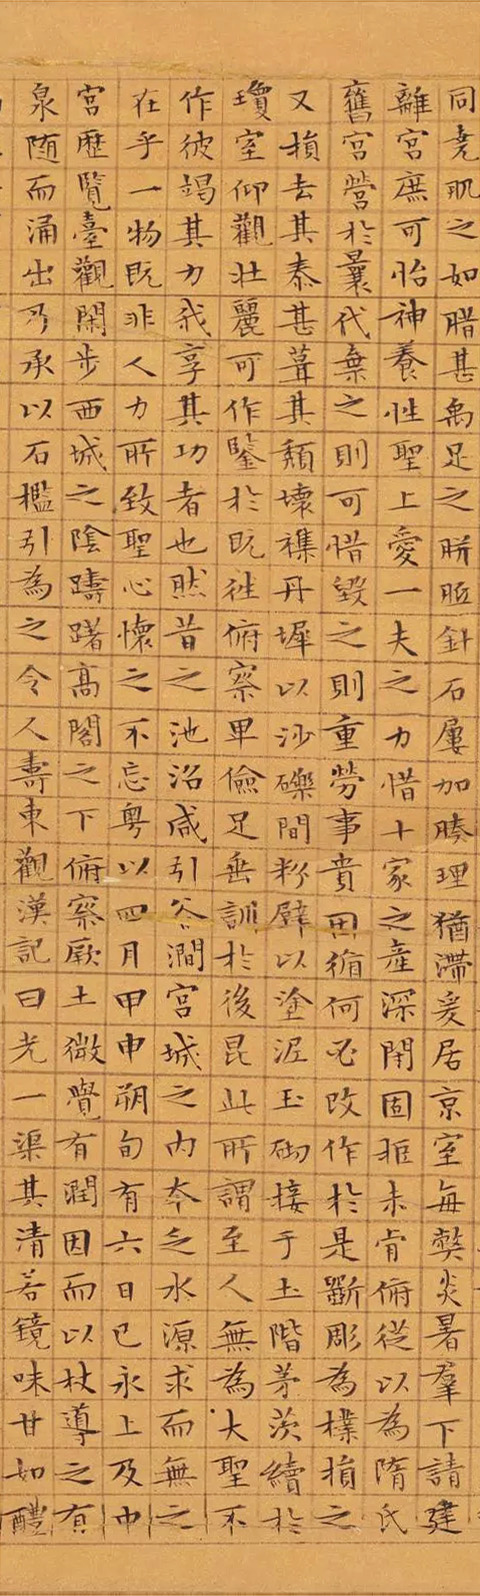 同堯肌之如腊甚禹足之胼胝針石屢加腠理猶滯爰居京室每弊炎暑羣下請建
離宮庶可怡神養性聖上愛一夫之力惜十家之產深閉固拒未肯俯從以為隋氏
舊宮營於曩代棄之則可惜毀之則重勞事貴因循何必改作於是斲彫為樸損之
又損去其泰甚葺其頹壞襍丹墀以沙礫間粉壁以塗泥玉砌接于土階茅茨續於
瓊室仰觀壯麗可作鑒於既往俯察卑儉足垂訓於後昆此所謂至人無為大聖不
作彼竭其力我享其功者也然昔之池沼咸引谷澗宮城之內本乏水源求而無之
在乎一物既非人力所致聖心懷之不忘粵以四月甲申朔旬有六日己亥上及中
宮歷覽臺觀閑步西城之陰躊躇高閣之下俯察厥土微覺有潤因而以杖導之有
泉随而涌出乃承以石檻引為之令人壽東觀漢記曰光一渠其清若鏡味甘如醴